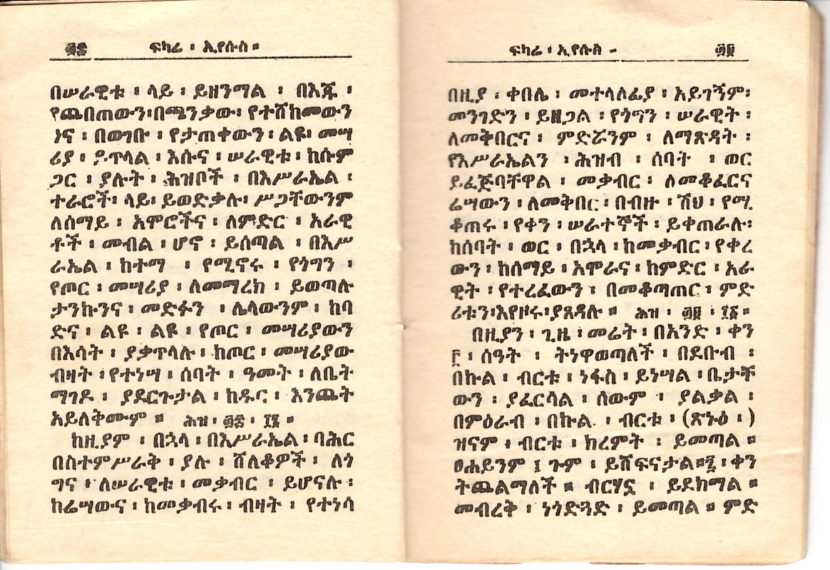 ፴፰ ፍካሬ ፡ ኢየሱስ ።
በሠራዊቱ ፡ ላይ ፡ ይዘንማል ፡ በእጁ ፡
የጨበጠውን፡በጫንቃው፡ የተሸከመውን
ና ፡ በወገቡ ፡ የታጠቀውን ፡ ልዩ፡ መሣ
ሪያ ፡ ይጥላል ፡ እሱና ፡ ሠራዊቱ ፡ ከሱም
ጋር ፡ ያሉት ፡ ሕዝቦች ፡ በእሥራኤል ፡
ተራሮች፡ ላይ፡ ይወድቃሉ፡ ሥጋቸውንም
ለሰማይ ፡ አሞሮችና ፡ ለምድር ፡ አራዊ
ቶች ፡ መብል ፡ ሆኖ ፡ ይሰጣል ፡ በእሥ
ራኤል ፡ ከተማ ፡ የሚኖሩ ፡ የጎግን ፡
የጦር ፡ መሣሪያ ፡ ለመማረክ ፡ ይወጣሉ
ታንኩንና ፡ መድፉን ፡ ሌላውንም ፡ ከባ
ድና ፡ ልዩ ፡ ልዩ ፡ የጦር ፡ መሣሪያውን
በእሳት ፡ ያቃጥላሉ ፡ ከጦር ፡ መሣሪያው
ብዛት ፡ የተነሣ ፡ ሰባት ፡ ዓመት ፡ ለቤት
ማገዶ ፡ ያደርጉታል ፡ ከዱር ፡ እንጨት
አይለቅሙም ። ሕዝ ፡ ፴፰ ፡
ከዚያም ፡ በኋላ ፡ በእሥራኤል ፡ ባሕር
በስተምሥራቅ ፡ ያሉ ፡ ሸለቆዎች ፡ ለጎ
ግና ፡ ለሠራዊቱ ፡ መቃብር ፡ ይሆናሉ ፡
ከሬሣውና ፡ ከመቃብሩ ፡ ብዛት ፡ የተነሳ
ፍካሬ ፡ ኢየሱስ ። ፴፱
በዚያ ፡ ቀበሌ ፡ መተላለፊያ ፡ አይገኝም፡
መንገድን ፡ ይዘጋል ፡ የጎግን ፡ ሠራዊት ፡
ለመቅበርና ፡ ምድሯንም ፡ ለማጽዳት ፡
የእሥራኤልን ፡ ሕዝብ ፡ ሰባት ፡ ወር
ይፈጅባቸዋል ፡ መቃብር ፡ ለመቆፈርና
ሬሣውን ፡ ለመቅበር ፡ በብዙ ፡ ሽህ ፡ የሚ
ቆጠሩ ፡ የቀን ፡ ሠራተኞች ፡ ይቀጠራሉ፡
ከሰባት ፡ ወር ፡ በኋላ ፡ ከመቃብር ፡ የቀረ
ውን ፡ ከሰማይ ፡ አሞራና ፡ ከምድር ፡ አራ
ዊት ፡ የተረፈውን ፡ በመቆጣጠር ፡ ምድ
ሪቱን፡እየዞሩ፡ያጸዳሉ ። ሕዝ ፡ ፴፱ ፡
በዚያን ፡ ጊዜ ፡ መሬት ፡ በአንድ ፡ ቀን
፫ ፡ ሰዓት ፡ ትነዋወጣለች ፡ በደቡብ ፡
በኩል ፡ ብርቱ ፡ ነፋስ ፡ ይነሣል ፡ ቤታቸ
ውን ፡ ያፈርሳል ፡ ሰውም ፡ ያልቃል ፡
በምዕራብ ፡ በኩል ፡ ብርቱ ፡ (ጽኑዕ ፡ )
ዝናም ፡ ብርቱ ፡ ክረምት ፡ ይመጣል ።
ፀሐይንም ፤ ጉም ፡ ይሸፍናታል።፯ ፡ ቀን
ትጨልማለች ። ብርሃኗ ፡ ይደክማል ።
መብረቅ ፡ ነጎድጓድ ፡ ይመጣል ። ምድ